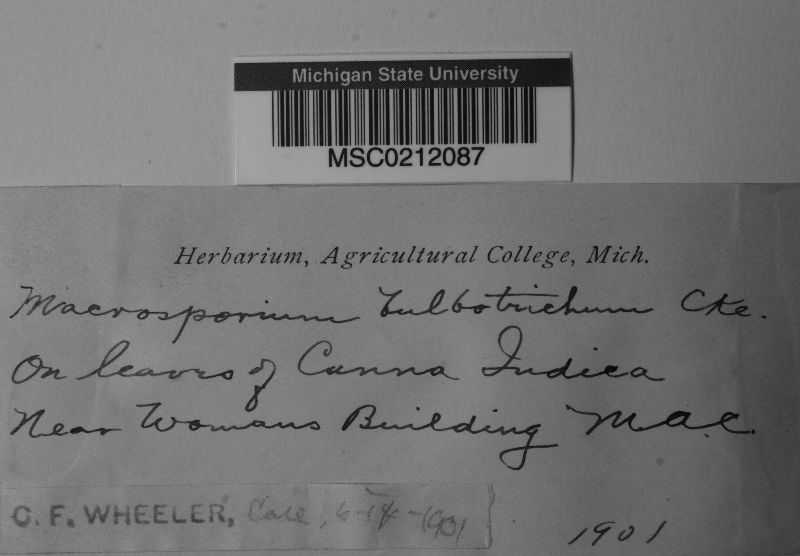 Michigan State University
MSC0212087
Herbarium, Agricultural College, Mich.
Macrosporium bulbotrichum Cke.
On leaves of Canna Indica
Near Womans Building M.A.C.
C. F. WHEELER, Coll, 6-14-1901
1901